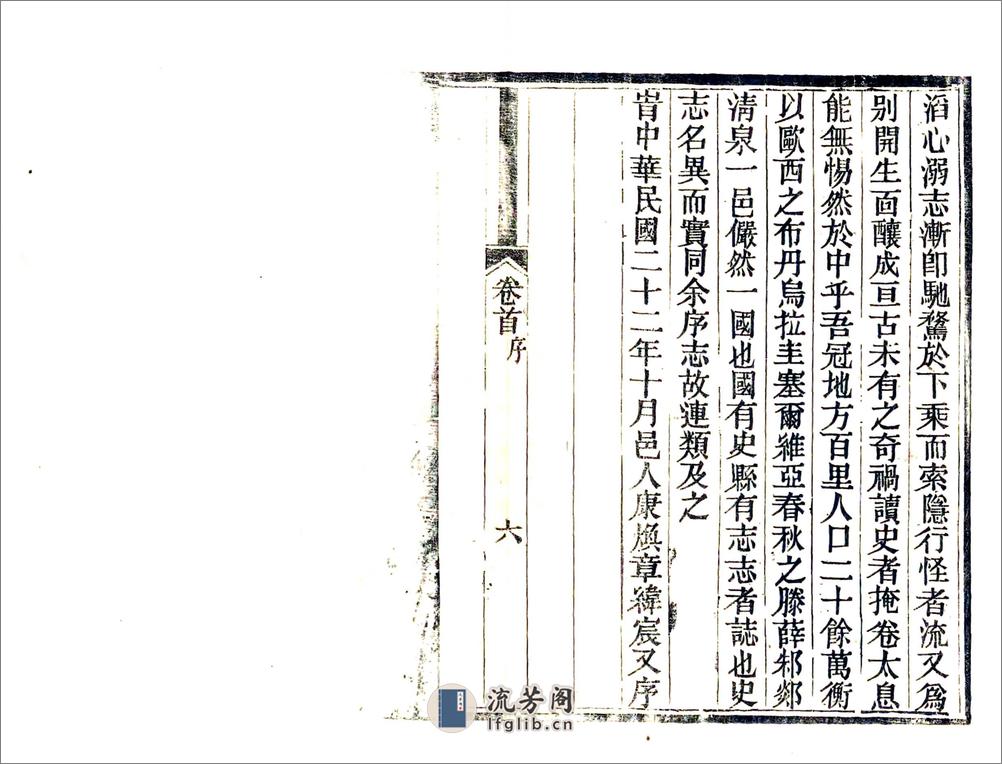 滔心溺志漸卽馳騖於下乘而索隱行怪者流又爲
別開生面釀成亘古未有之奇禍讀史者掩卷太息
能無惕然於中乎吾冠地方百里人口二十餘萬衡
以歐西之布丹烏拉圭塞爾維亞春秋之滕薛邾郯
清泉一邑儼然一國也國有史縣有志志者誌也史
志名異而實同余序志故連類及之
旹中華民國二十二年十月邑人康煥章緯宸又序
卷首 序
六
流芳阁
lfglib.cn